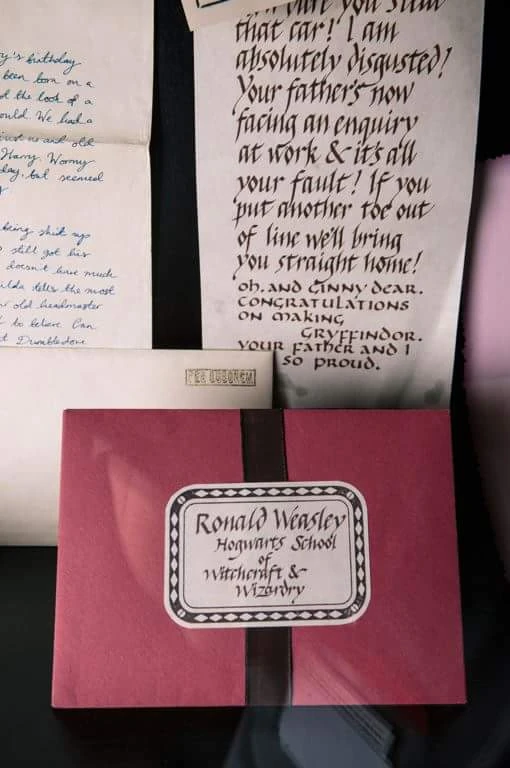 y's birthday
been born on a
t the look of a
ould. We had a
just us and old
Harry. Wormy
day, but seemed
being shut up
still got his
doesn't have much
ilda tells the most
old headmaster
to believe. Can
t Dumbledore
you
that car! I am
absolutely disgusted!
Your father's now
facing an enquiry
at work & it's all
your fault! If you
put another toe out
of line we'll bring
you straight home!
oh, and Ginny dear.
Congratulations
on making,
Gryffindor.
your father and I
so proud.
Ronald Weasley
Hogwarts School
of
Witchcraft &
Wizardry